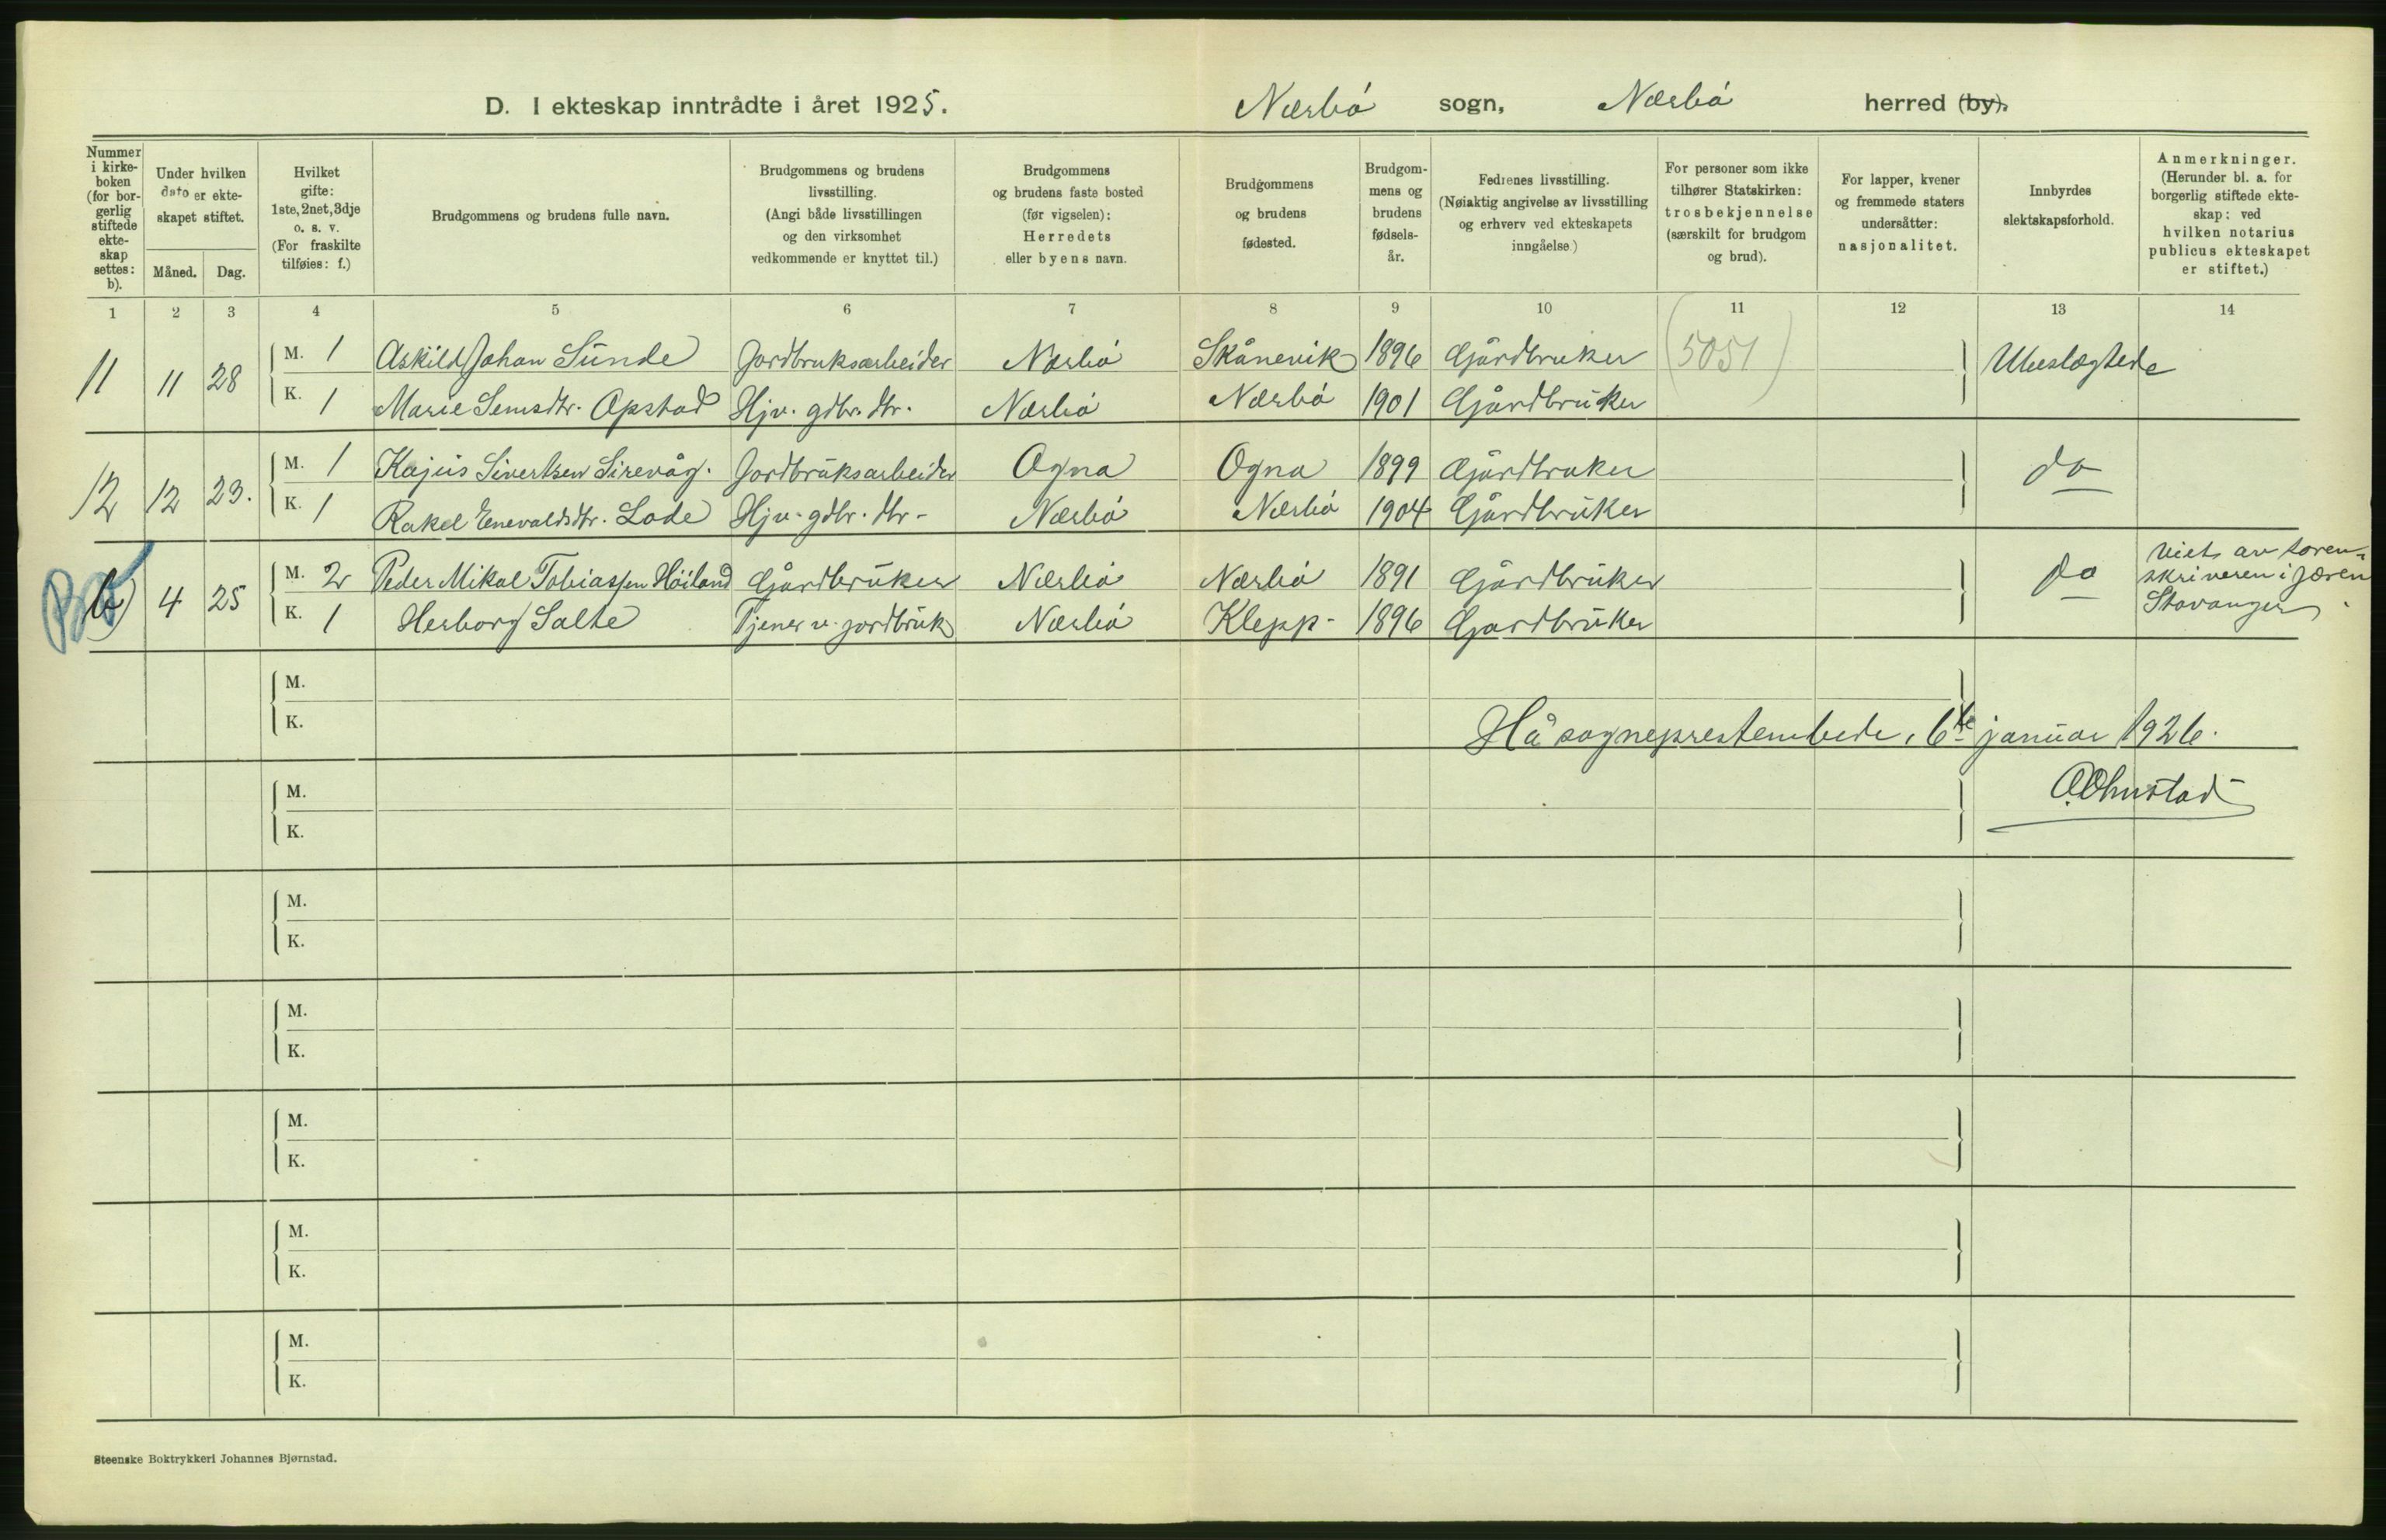 D. I ekteskap inntrådte i året 1925. Nærbó sogn, Nærbó herred (by).
Nummer i kirke-boken (for bor-gerlig stiftede ekte-skap settes: b).
Under hvilken dato er ekte-skapet stiftet.
Måned. Dag.
Hvilket gifte: 1ste, 2net, 3dje o. s. v. (For fraskilte tilføies: f.)
Brudgommens og brudens fulle navn.
Brudgommens og brudens livsstilling. (Angi både livsstillingen og den virksomhet vedkommende er knyttet til.)
Brudgommens og brudens faste bosted (før vigselen): Herredets eller byens navn.
Brudgommens og brudens fødested.
Brudgom-mens og brudens fødsels-år.
Fedrenes livsstilling. (Nøiaktig angivelse av livsstilling og erhverv ved ekteskapets inngåelse.)
For personer som ikke tilhører Statskirken: trosbekjennelse (særskilt for brudgom og brud).
For lapper, kvener og fremmede staters undersåtter: nasjonalitet.
Innbyrdes slektskapsforhold.
Anmerkninger. (Herunder bl. a. for borgerlig stiftede ekte-skap: ved hvilken notarius publicus ekteskapet er stiftet.)
1 2 3 4 5 6 7 8 9 10 11 12 13 14
11 11 28 M. 1 Askild Johan Sunde Jordbruksarbeider Nærbó Skånevik 1896 Gårdbruker (5051) Ubeslægtede
K. 1 Marie Semsdtr. Opstad Hjv. gdbr. dtr. Nærbó Nærbó 1901 Gårdbruker
12 12 23. M. 1 Kajus Sivertsen Sirevåg. Jordbruksarbeider Ogna Ogna 1899 Gårdbruker do
K. 1 Rakel Enevaldsdtr. Lode Hjv. gdbr. dtr. Nærbó Nærbó 1904 Gårdbruker
b) 4 25 M. 2 Peder Mikal Tobiassen Höiland Gårdbruker Nærbó Nærbó 1891 Gårdbruker do Viet av soren-
skriveren i Jæren
K. 1 Herborg Salte Tjener v. jordbruk Nærbó Klepp 1896 Gardbruker Stavanger.
M.
K.
Hå sogneprestembede, 6te januar 1926.
M.
O. Ohnstad
K.
M.
K.
M.
K.
M.
K.
M.
K.
M.
K.
Steenske Boktrykkeri Johannes Bjørnstad.